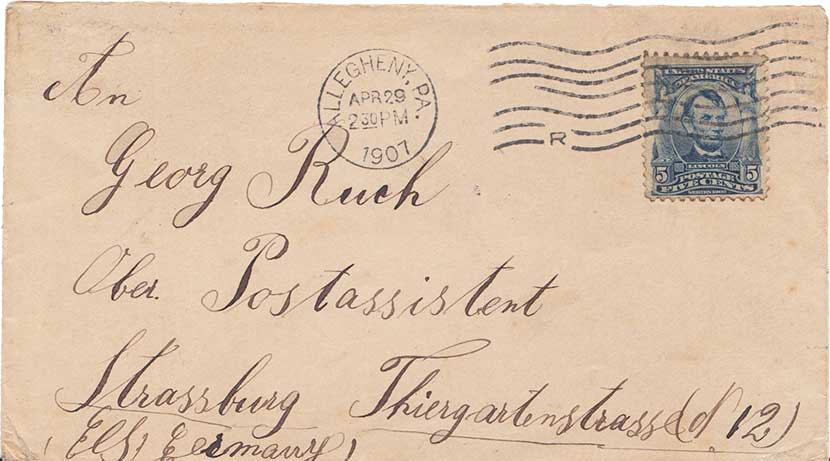 An
ALLEGHENY, PA.
APR 29
2 30 PM
1907
R
UNITED STATES
OF AMERICA
LINCOLN
5 POSTAGE 5
FIVE CENTS
SERIES 1902
Georg Ruch
Ober. Postassistent
Strassburg Thiergartenstrasse (N 12)
(Els) Germany)